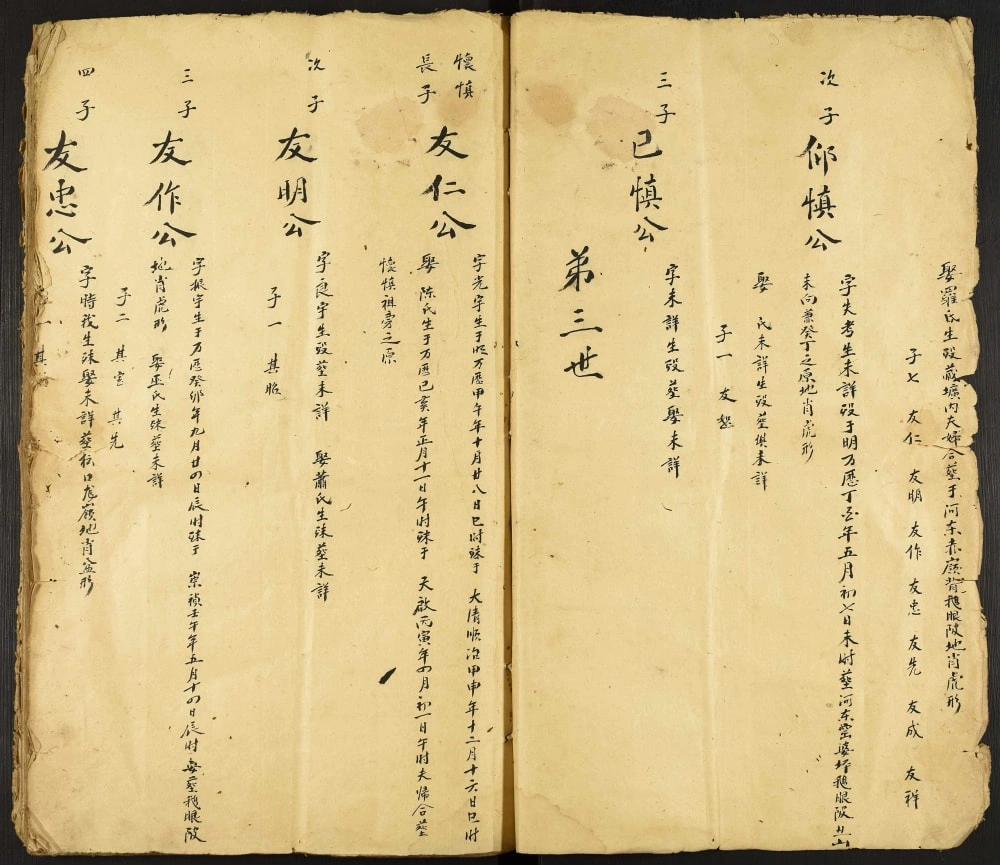 娶羅氏生殁藏壙内夫婦合塟于河东赤嶺背鵝眼陂地肖虎形
子七 友仁 友明 友作 友忠 友先 友成 友祥
次子 仰慎公
字失考生未詳殁于明万厯丁 年五月初七日未时塟河东 婆坪鵝眼陂丑山
未向蓋癸丁之原地肖虎形
娶 氏未詳生殁塟俱未詳
子一 友
三子 已慎公
字未詳生殁塟娶未詳
弟三世
懷慎
長子 友仁公
字光宇生于明万厯甲午年十月廿八日巳时殁于 大清順治甲申年十二月十六日巳时
娶 陈氏生于万厯己亥年正月十一日午时殁于 天啟丙寅年四月初一日午时夫帰合塟
懷慎祖旁之原
次子 友明公
字良宇生殁塟未詳 娶蕭氏生殁塟未詳
子一 其昭
三子 友作公
字振宇生于万厯癸卯年九月廿四日辰时殁于 崇禎壬午年五月十四日辰时 塟鵝眼陂
地肖虎形 娶巫氏生殁塟未詳
子二 其 其先
四子 友忠公
字時我生殁娶未詳塟 口 嶺地肖盆形
子一 其